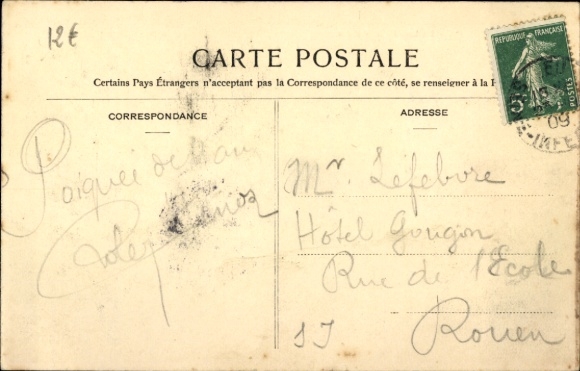 12€
CARTE POSTALE
Certains Pays Étrangers n'acceptant pas la Correspondance de ce côté, se renseigner à la
CORRESPONDANCE
ADRESSE
REPUBLIQUE FRANÇAISE
POSTES
09
Poignée de main
Mr. Lefebvre
Hôtel Gougon
Rue de l'Ecole
Rouen